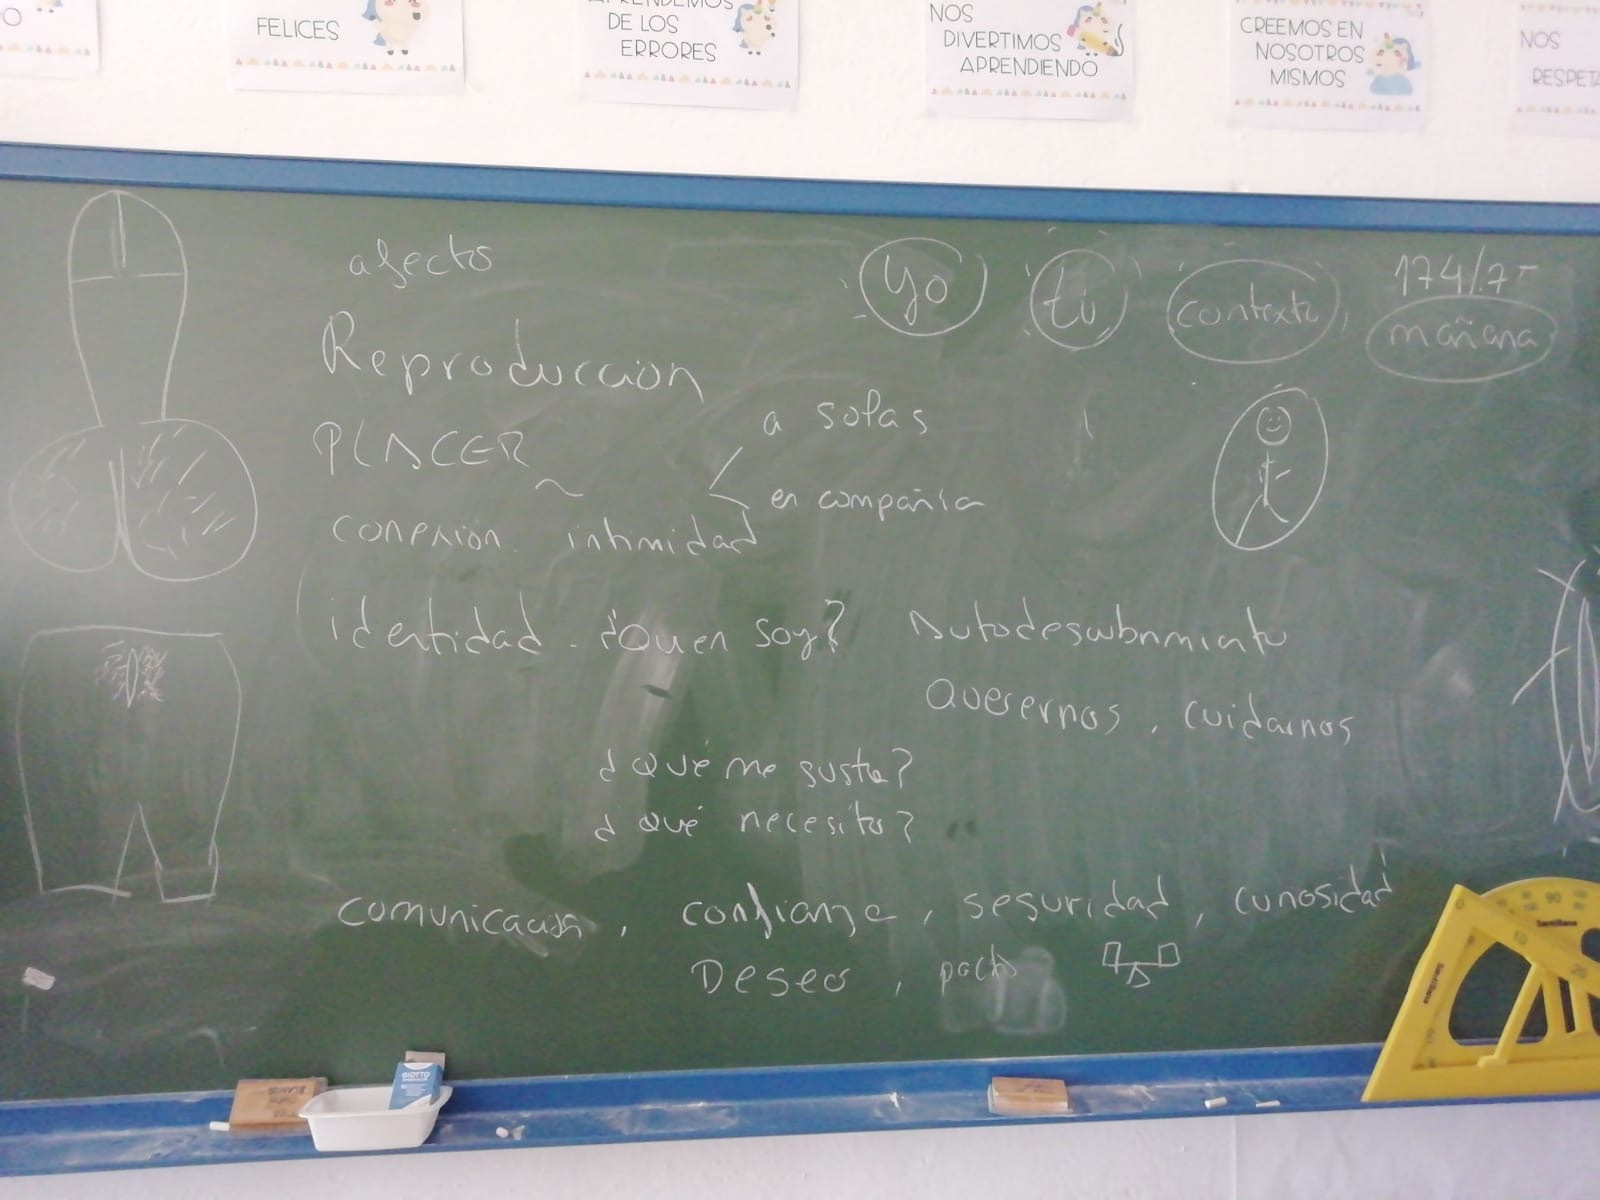 FELICES
DE LOS
ERRORES
NOS
DIVERTIMOS
APRENDIENDO
CREEMOS EN
NOSOTROS
MISMOS
NOS
afecto
Reproduccion
PLACER
a solas
en compañia
conexion intimidad
identidad - ¿Quien soy? Autodescubrimiento
Querernos, cuidarnos
¿Qué me gusta?
¿qué necesito?
comunicación, confianza, seguridad, curiosidad
Deseo, pacto
Yo
tú
contexto,
mañana
GIOTTO
Santillana